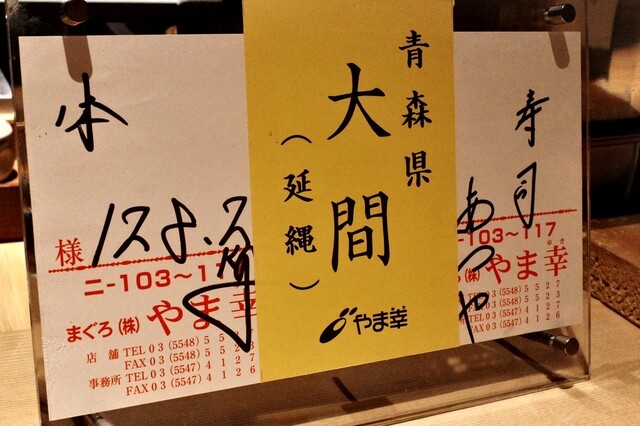 青森県
大間
（延縄）
やま幸
寿司
様
ニ-103〜1
まぐろ㈱やま幸
店舗 TEL 03 (5548) 5 5 2
FAX 03 (5548) 5 5 2 3
事務所 TEL 03 (5547) 4 1 2 7
FAX 03 (5547) 4 1 2 6
-103〜117
やま幸
ゆき
03 (5548) 5 5 2 7
03 (5548) 5 5 2 3
03 (5547) 4 1 2 7
03 (5547) 4 1 2 6